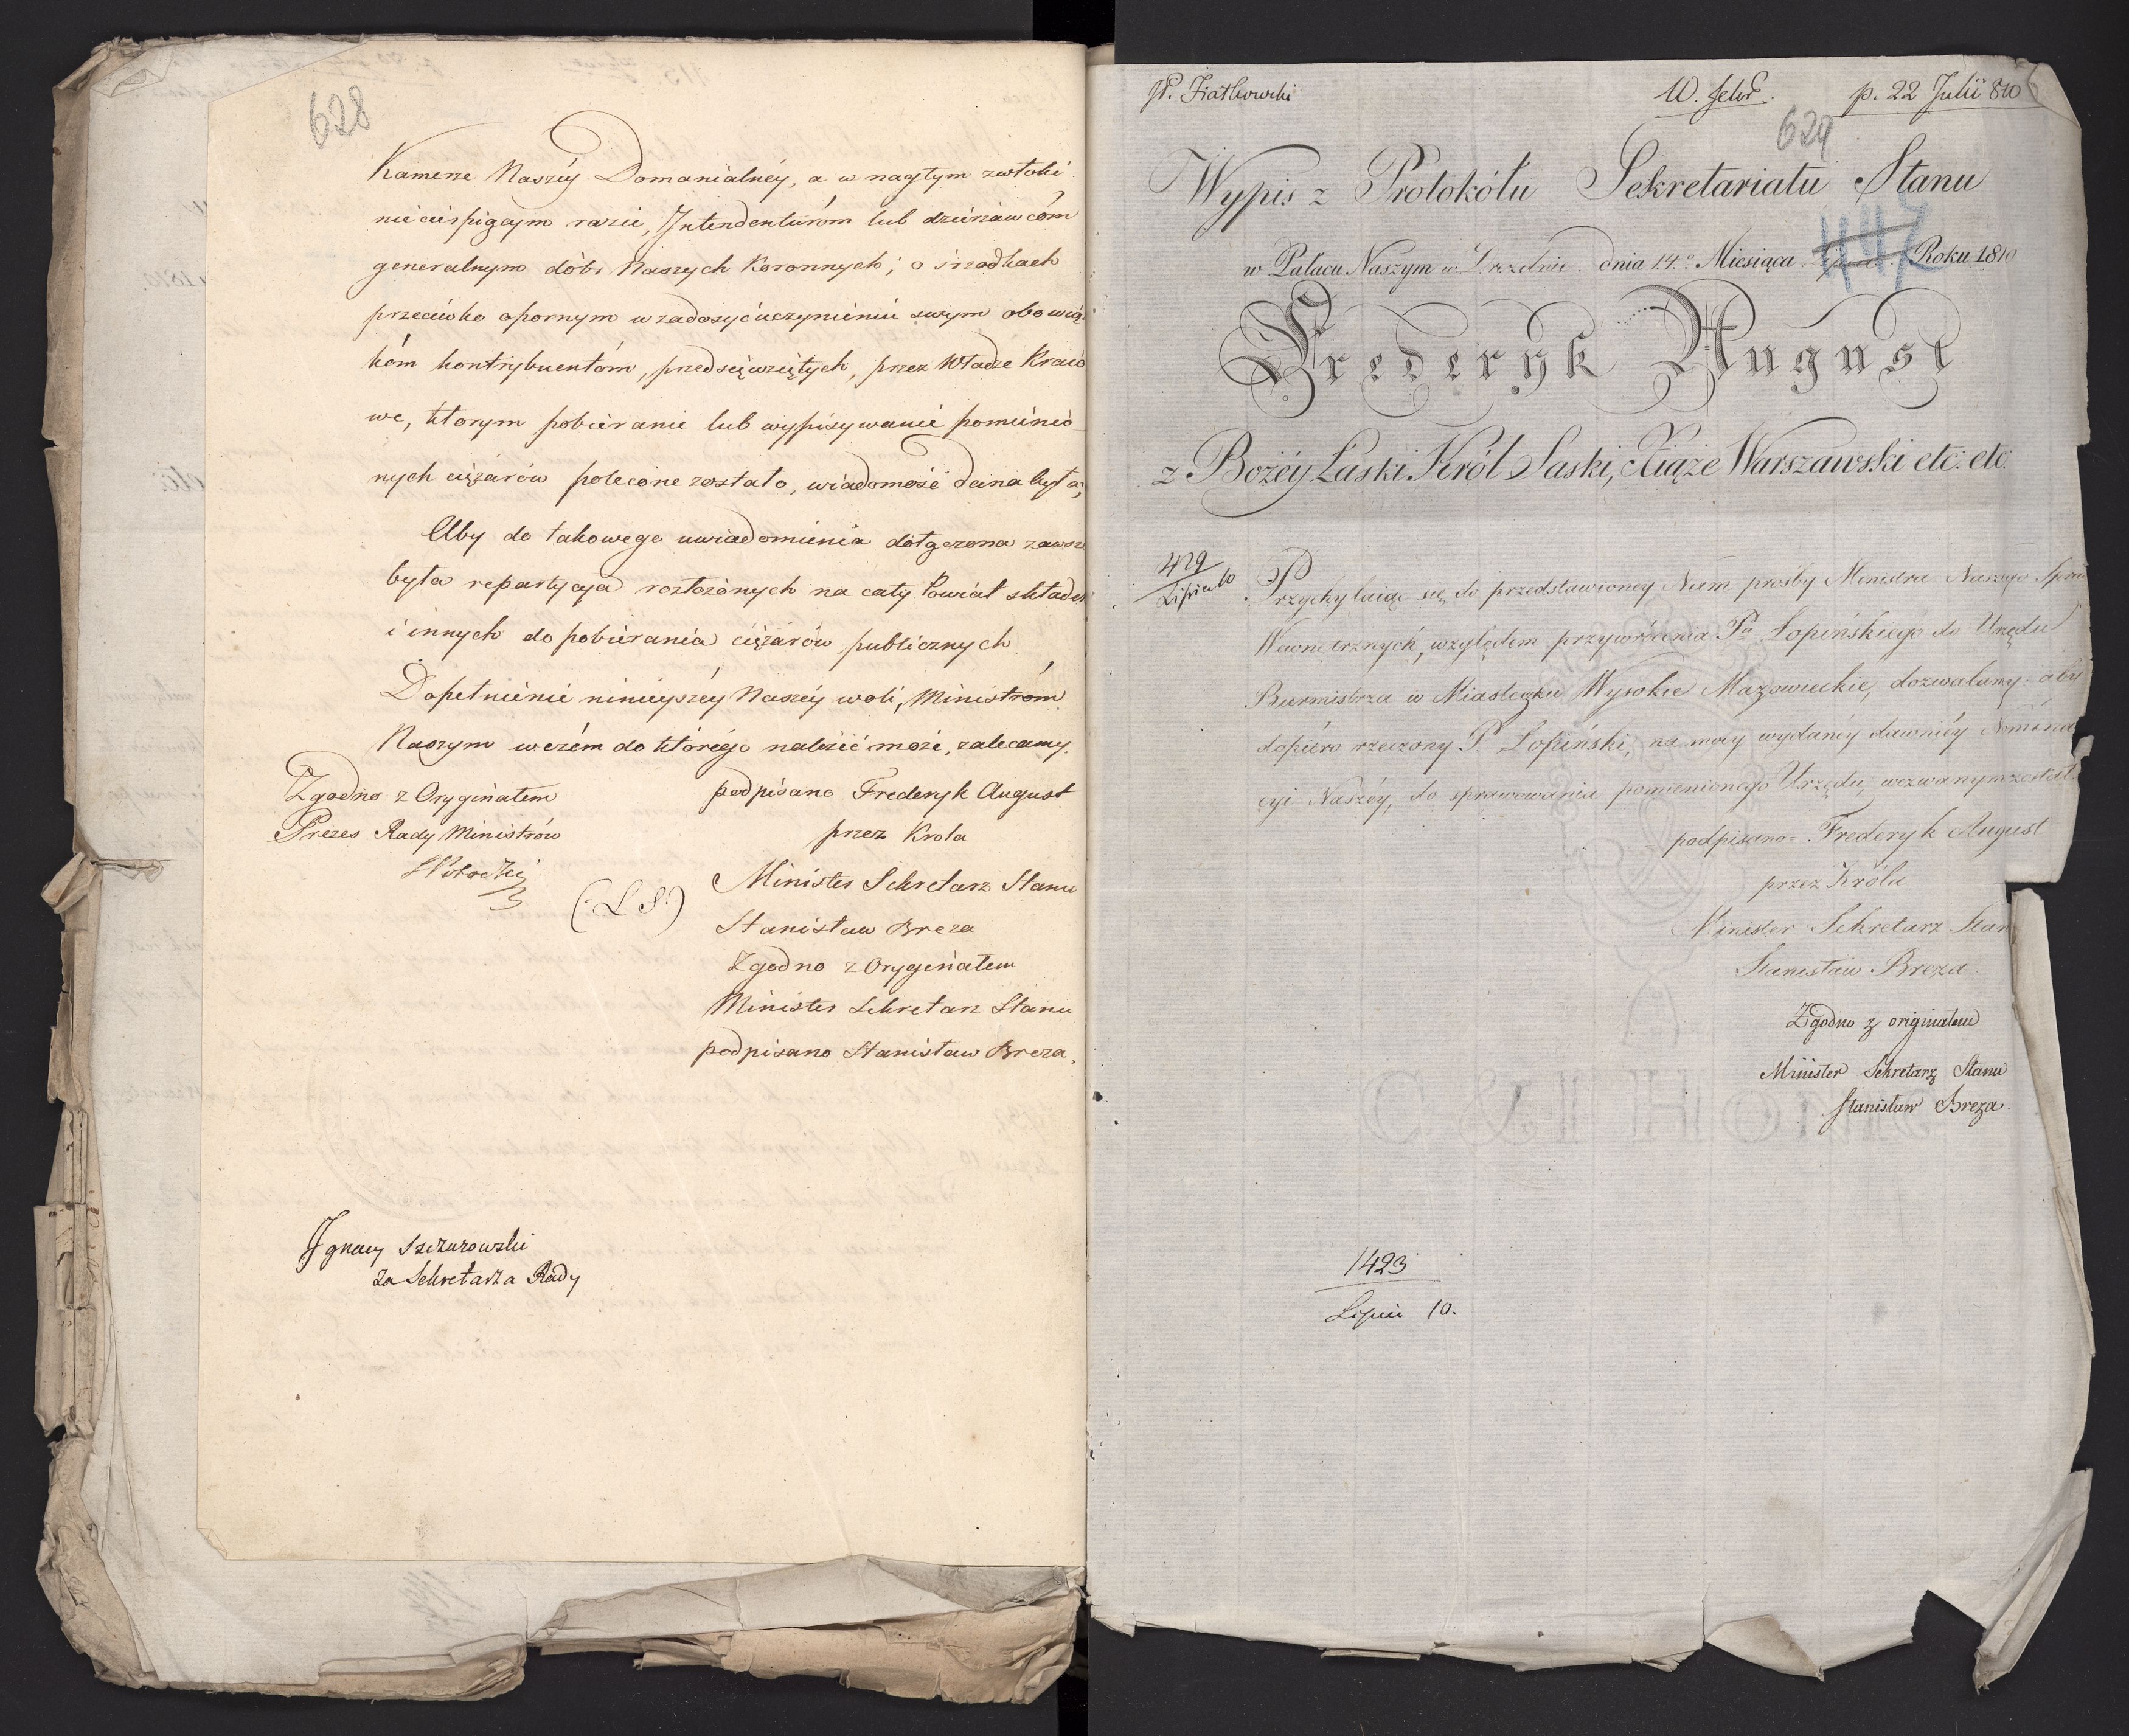 628
Kamerze Naszéy Domanialnéy, a w nagłym zwłoki
niecierpiącym razie, Intendenturóm lub dzierżawcóm
generalnym dóbr Naszych Koronnych; o środkach
przeciwko opornym w zadosyć uczynieniu swym obowiąz
kóm kontrybuentóm, przedsięwziętych, przez Władze Kraio
we, którym pobieranie lub wypisywanie pomienio
nych ciężarów polecone zostało, wiadomość dana była;
Aby do takowego uwiadomienia dołączona zawsze
była repartycya rozłożonych na cały Powiat składek
i innych do pobierania ciężarów publicznych.
Dopełnienie ninieyszéy Naszéy woli, Ministróm
Naszym w czém do którégo należéć może, zalecamy.
Zgodno z Oryginałem
Prezes Rady Ministrów
podpisano Frederyk August
przez Króla
(L.S.)
Minister Sekretarz Stanu
Stanisław Breza
Zgodno z Oryginałem
Minister Sekretarz Stanu
podpisano Stanisław Breza.
Ignacy Szczurowski
za Sekretarza Rady
p. 22 Julii 810
629
Wypis z Protokółu Sekretariatu Stanu
447
w Pałacu Naszym w Dreznie dnia 14.º Miesiąca Lipca Roku 1810
Frederyk August
z Bożéy Łaski Król Saski, Xiąże Warszawski etc: etc:
429
Przychylaiąc się do przedstawioney Nam prośby Ministra Naszego Spraw
Wewnetrznych, względem przywrócenia Pa Łopińskiego do Urzędu
Burmistrza w Miasteczku Wysokie Mazowieckie, dozwalamy aby
dopiéro rzeczony P. Łopiński, na mocy wydanéy dawniéy Nomina
cyi Naszéy, do sprawowania pomienionego Urzędu, wezwanym został.
podpisano Frederyk August
przez Króla
Minister Sekretarz Stan
Stanisław Breza
Zgodno z originałem
Minister Sekretarz Stanu
Stanisław Breza
C & I HONIG
1423
Lipiec 10.